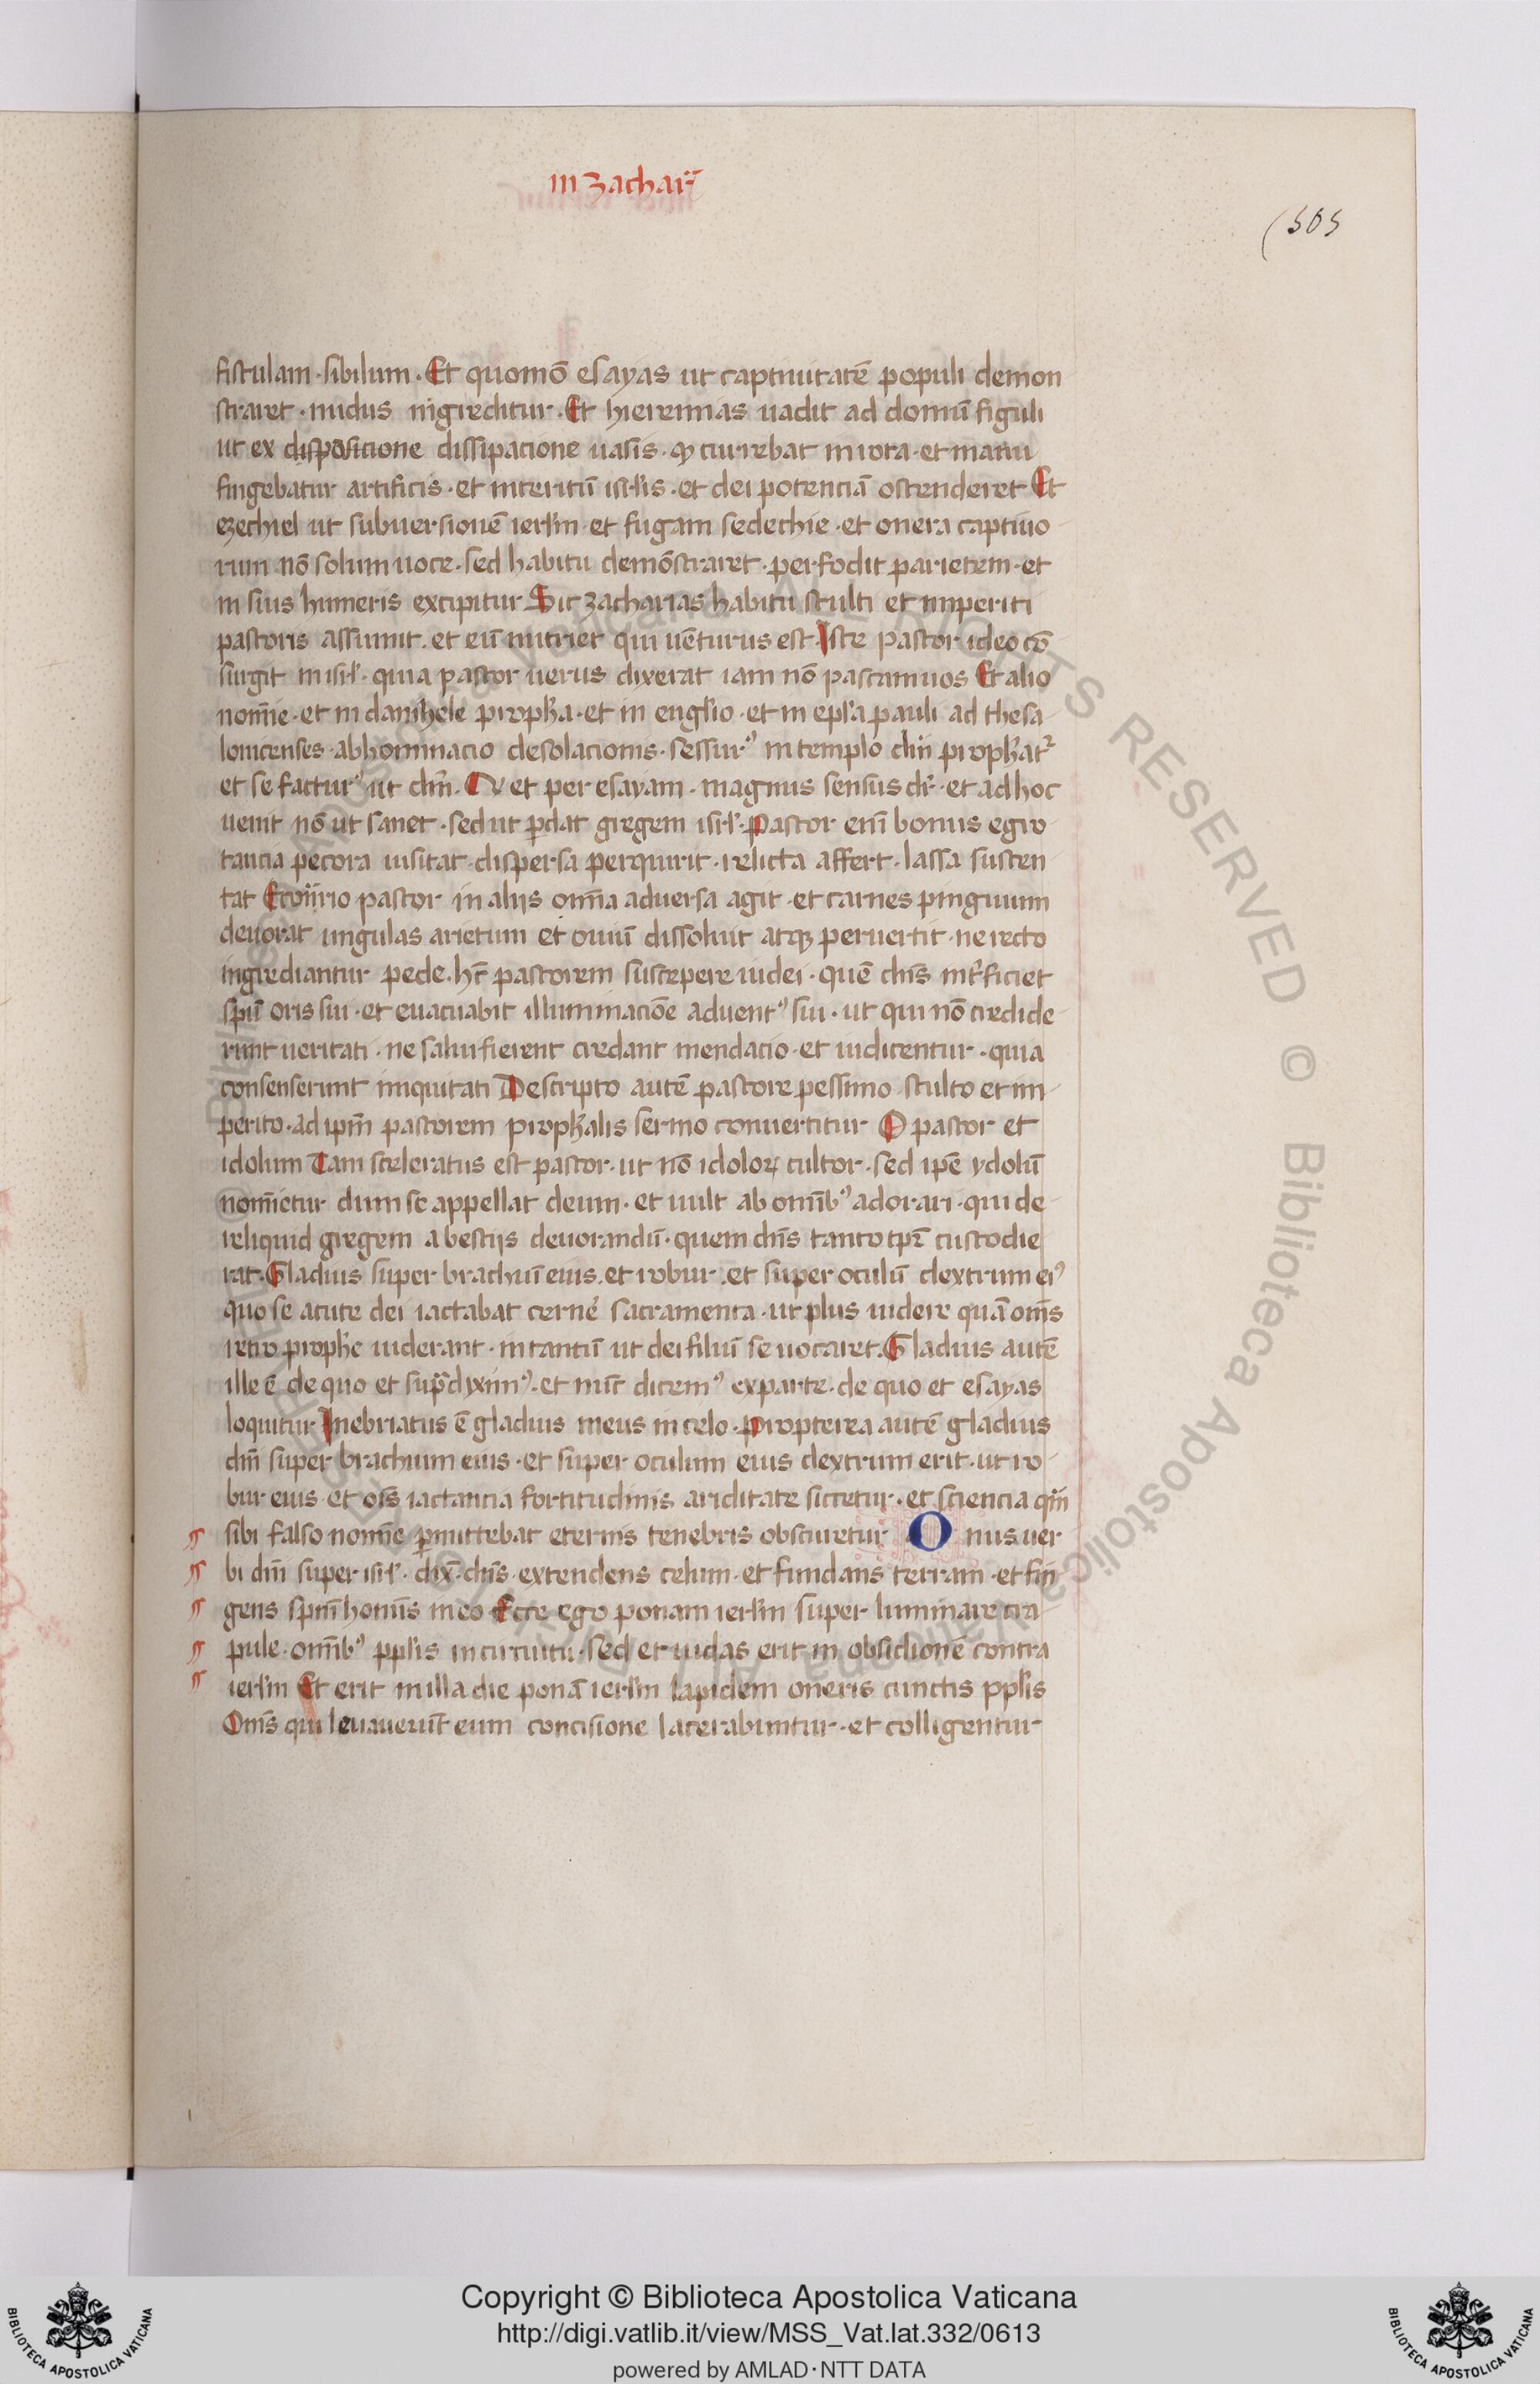 in zachar̄
(505
fistulam · sibilum · Et quomō esayas ut captiuitatē populi demon
straret · nudus ingreditur · Et hieremias uadit ad domū figuli
ut ex disposicione dissipacione uasis · qd currebat in rota · et manu
fingebatur artificis · et interitū isrł'is · et dei potenciā ostenderet Et
ezechiel ut subuersionē ierłm · et fugam sedechie · et onera captiuo
rum nō solum uoce · sed habitu demōstraret · perfodit parietem · et
in suis humeris excipitur Sic zacharias habitu stulti et imperiti
pastoris assumit · et eū nutriet qui uēturus est · Iste pastor ideo cō
surgit in isrł · quia pastor uerus dixerat iam nō pascam uos Et alio
nom̄ie · et in danihele proph̄a · et in eugłio · et in epła pauli ad thesa
lonicenses · abhominacio desolacionis · sessurꝰ in templo dn̄i proph̄atᷣ
et se facturꝰ ut dn̄m · et per esayam · magnus sensus dr̄ · et ad hoc
uenit nō ut sanet · sed ut ꝑdat gregem isrł · Pastor enī bonus egro
tancia pecora uisitat · dispersa perquirit · relicta affert · lassa susten
tat Econ̄rio pastor in aliis om̄ia aduersa agit · et carnes pinguium
deuorat ungulas arietum et ouiū dissoluit atqꝫ peruertit · ne recto
ingrediantur pede · hc̄ pastorem suscepere iudei · quē dn̄s int̄ficiet
spū oris sui · et euacuabit illuminaciōe aduentꝰ sui · ut qui nō credide
runt ueritati · ne salui fierent credant mendacio · et iudicentur · quia
consenserunt iniquitati Descripto autē pastore pessimo stulto et im
perito · ad ipm̄ pastorem proph̄alis sermo conuertitur O pastor et
idolum Tam sceleratus est pastor · ut nō idoloꝝ cultor · sed ipē ydolū
nom̄ietur dum se appellat deum · et uult ab om̄ibꝰ adorari · qui de
reliquid gregem a bestiis deuorandū · quem dn̄s tanto tpr̄e custodie
rat · Gladius super brachiū eius · et robur · et super oculū dextrum eiꝰ
quo se acute dei iactabat cerne᷑ sacramenta · ut plus uidere quā om̄s
retro proph̄e uiderant · in tantū ut dei filiū se uocaret · Gladius autē
ille ē de quo et sup̄ dyximꝰ · et nūc dicemꝰ ex parte · de quo et esayas
loquitur Inebriatus ē gladius meus in celo · Propterea autē gladius
dn̄i super brachium eius · et super oculum eius dextrum erit · ut ro
bur eius · et oīs iactancia fortitudinis ariditate siccetur · et sciencia qm̄
sibi falso nom̄ie ꝓmittebat eternis tenebris obscuretur Onus uer
bi dn̄i super isrł · dix̄ · dn̄s · extendens celum · et fundans terram · et fin
gens spm̄ hom̄is in eo Ecce ego ponam ierłm super luminare cra
pule · om̄ibꝰ ppłis in circuitu · sed et iudas erit in obsidionē contra
ierłm Et erit in illa die ponā ierłm lapidem oneris cunctis ppłis
Om̄s qui leuauerūt eum concisione lacerabuntur · et colligentur
Copyright © Biblioteca Apostolica Vaticana
http://digi.vatlib.it/view/MSS_Vat.lat.332/0613
powered by AMLAD·NTT DATA